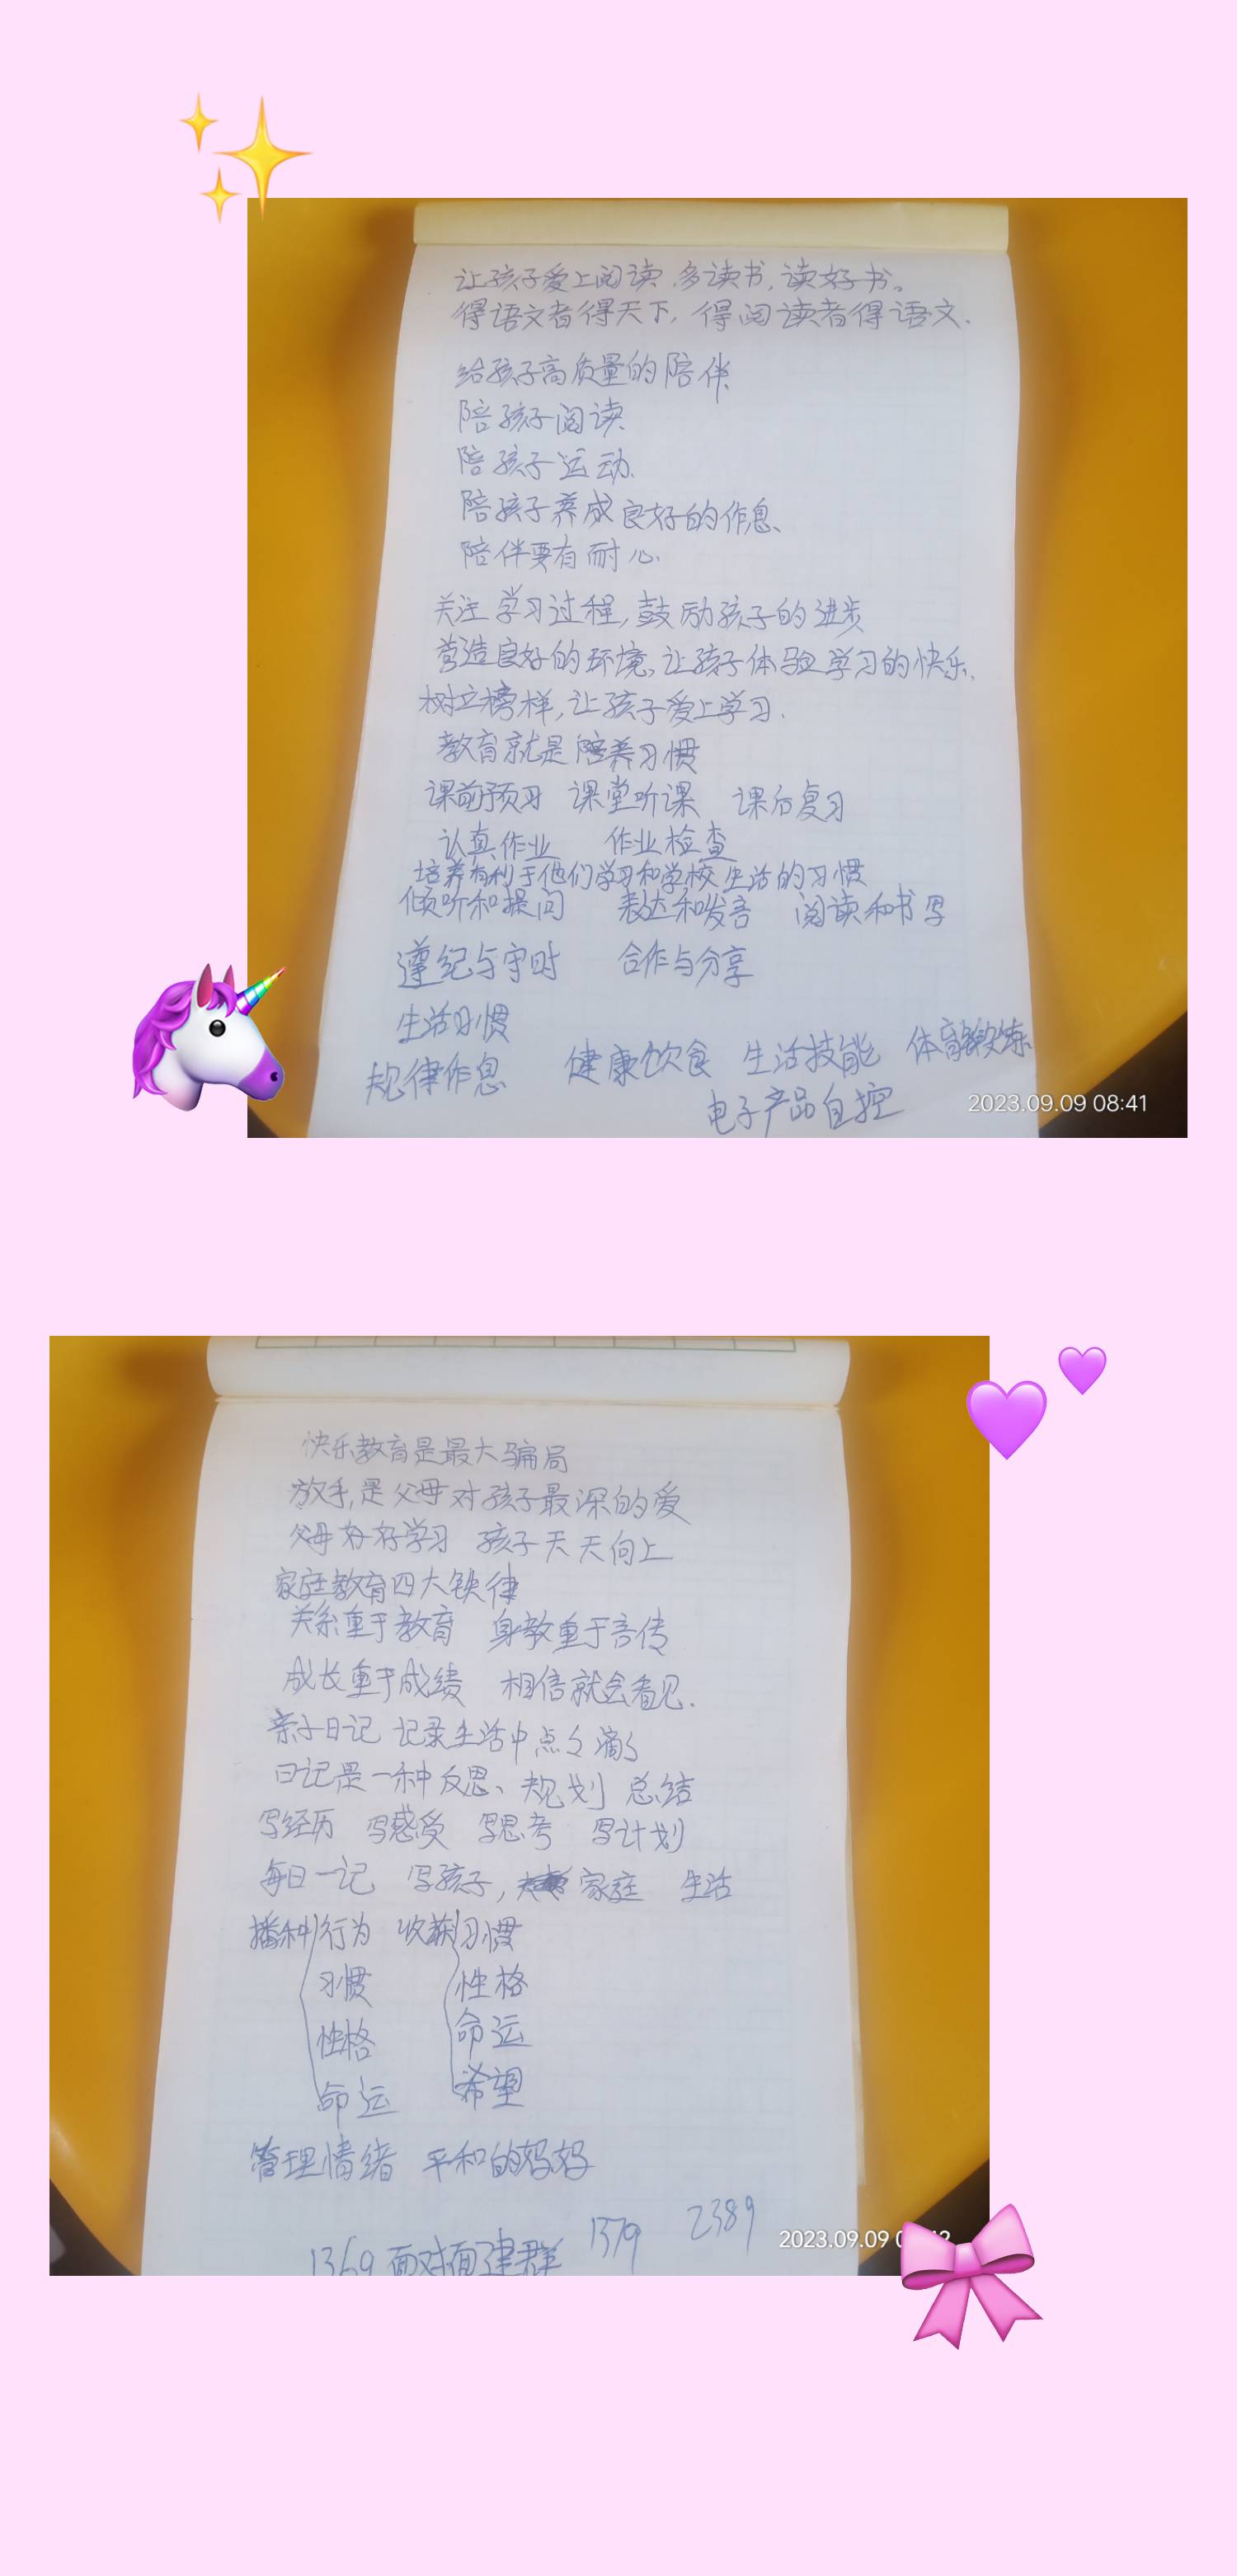 让孩子爱上阅读,多读书,读好书。
得语文者得天下,得阅读者得语文.
给孩子高质量的陪伴
陪孩子阅读
陪孩子运动.
陪孩子养成良好的作息、
陪伴要有耐心.
关注学习过程,鼓励孩子的进步
营造良好的环境,让孩子体验学习的快乐.
树立榜样,让孩子爱上学习.
教育就是陪养习惯
课前预习 课堂听课 课后复习
认真作业 作业检查
培养有利于他们学习和学校生活的习惯
倾听和提问 表达和发言 阅读和书写
遵纪与守时 合作与分享
生活习惯
规律作息 健康饮食 生活技能 体育锻炼
电子产品自控
2023.09.09 08:41
快乐教育是最大骗局
放手,是父母对孩子最深的爱
父母好好学习 孩子天天向上
家庭教育四大铁律
关系重于教育 身教重于言传
成长重于成绩 相信就会看见.
亲子日记 记录生活中点々滴々
日记是一种反思、规划 总结
写经历 写感受 写思考 写计划
每日一记 写孩子, 家庭 生活
播种 行为 收获 习惯
习惯 性格
性格 命运
命运 希望
管理情绪 平和的妈妈
1369 面对面建群 1379 2389
2023.09.09